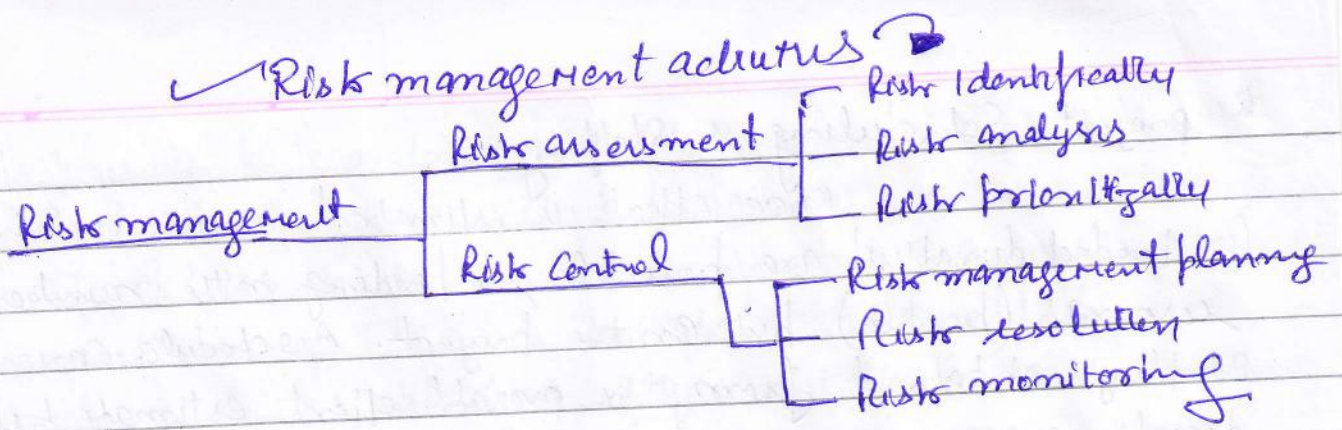 Risk management activities
Risk management
Risk assessment
Risk Identification
Risk analysis
Risk prioritization
Risk Control
Risk management planning
Risk resolution
Risk monitoring